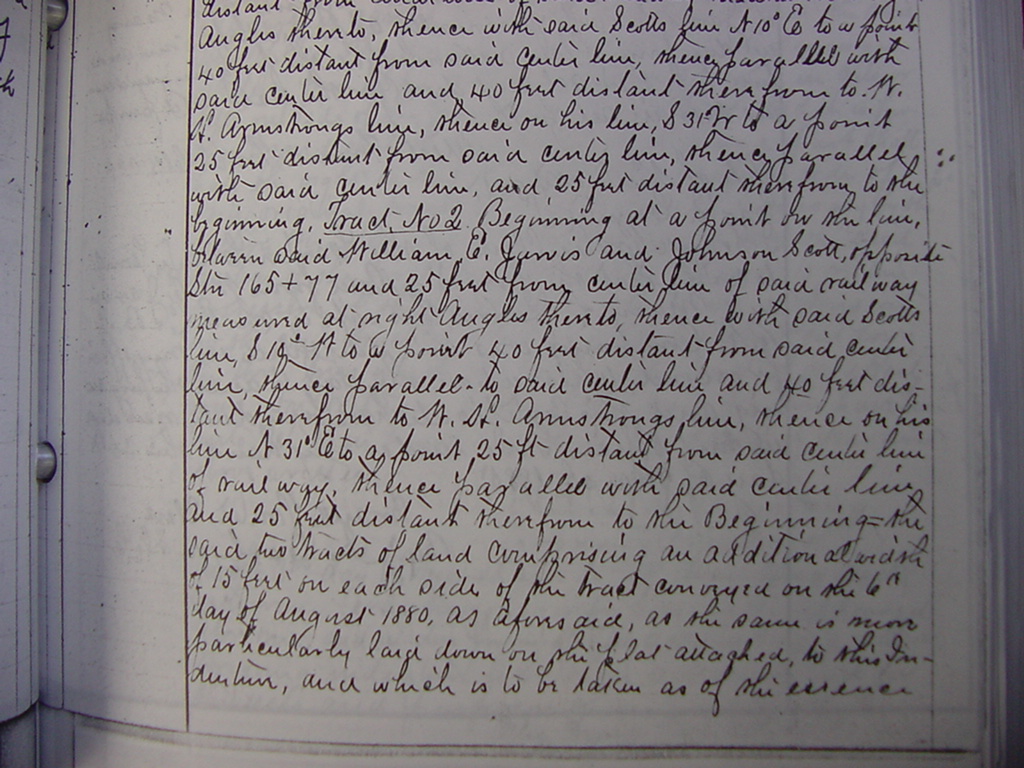 distant from
Angles thereto, thence with said Scotts line N 10° E to a point
40 feet distant from said center line, thence parallel with
said center line and 40 feet distant therefrom to W.
H. Armstrongs line, thence on his line, S 31° W to a point
25 feet distant from said center line, thence parallel
with said center line, and 25 feet distant therefrom, to the
beginning. Tract No 2 Beginning at a point on the line,
between said William E. Jarvis and Johnson Scott, opposite
Stn 165+77 and 25 feet from center line of said railway
measured at right Angles thereto, thence with said Scotts
line, S 10° W to a point 40 feet distant from said center
line, thence parallel to said center line and 40 feet dis-
tant therefrom to W. H. Armstrongs line, thence on his
line N 31° E to a point 25 ft distant from said center line
of railway, thence parallel with said center line
and 25 feet distant therefrom to the Beginning = the
said two tracts of land comprising an additional width
of 15 feet on each side of the tract conveyed on the 6th
day of August 1880, as aforesaid, as the same is more
particularly laid down on the plat attached, to this In-
denture, and which is to be taken as of the essence